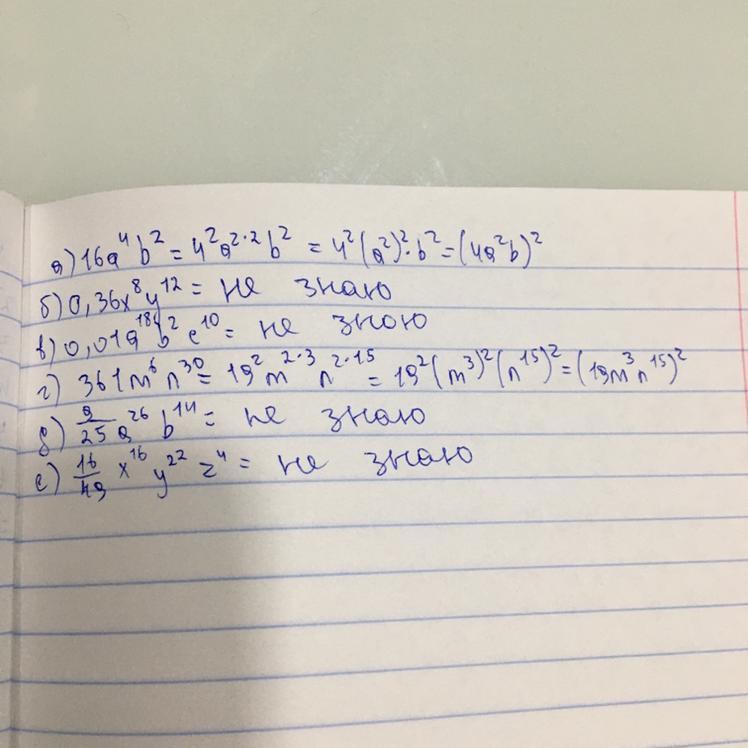 а) 16a⁴b² = 4²a²·²b² = 4²(a²)²·b² = (4a²b)²
б) 0,36x⁸y¹² = не знаю
в) 0,01a¹⁸b²c¹⁰ = не знаю
г) 361m⁶n³⁰ = 19²m²·³n²·¹⁵ = 19²(m³)²(n¹⁵)² = (19m³n¹⁵)²
д) 9/25 a²⁶b¹⁴ = не знаю
е) 16/49 x¹⁶y²²z⁴ = не знаю